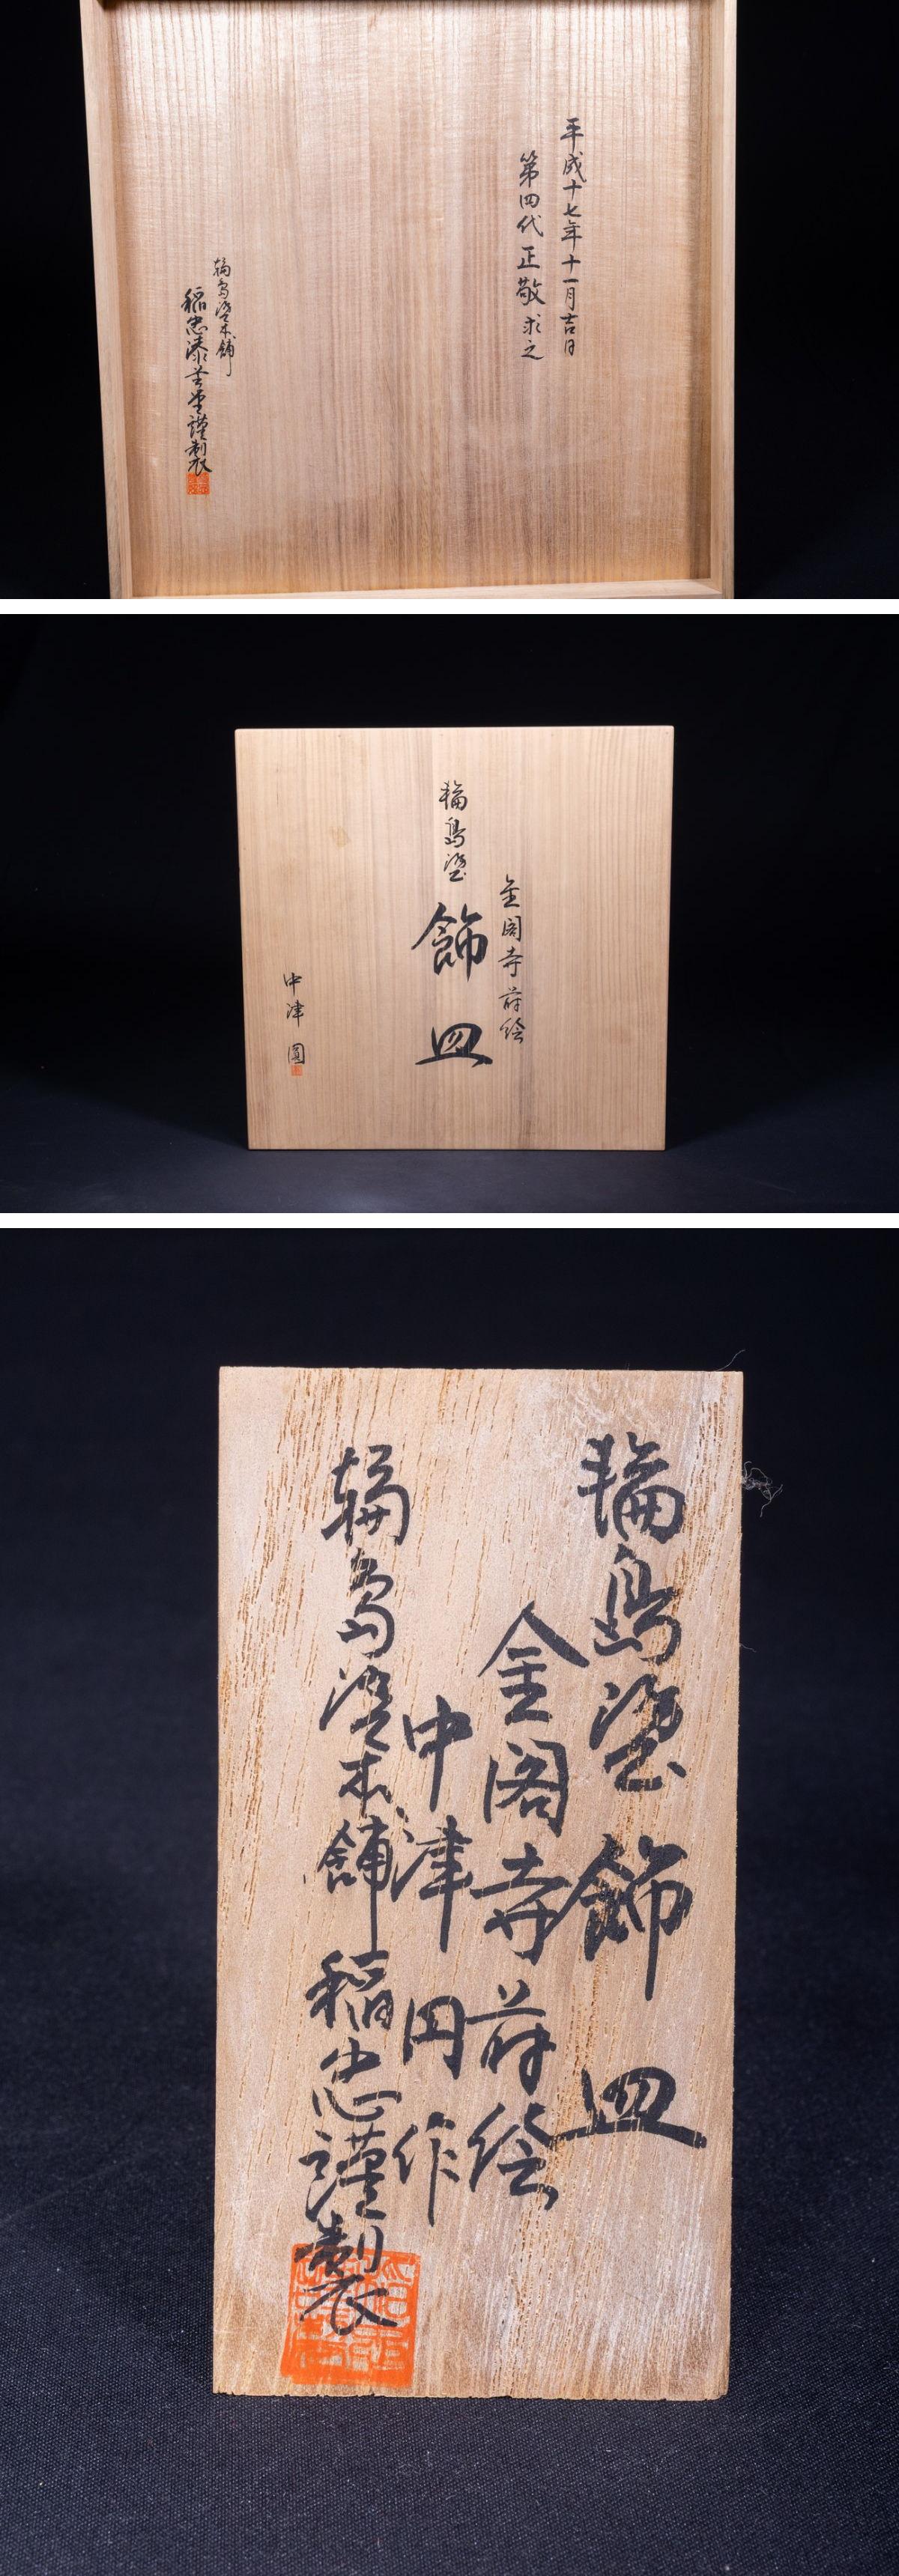 平成十七年十一月吉日
第四代正敬求之
輪島塗本舗
稲忠漆芸堂謹製
金閣寺蒔絵
輪島塗 飾皿
中津 圓
輪島塗 飾皿
金閣寺蒔絵
中津円作
輪島塗本舗 稲忠謹製